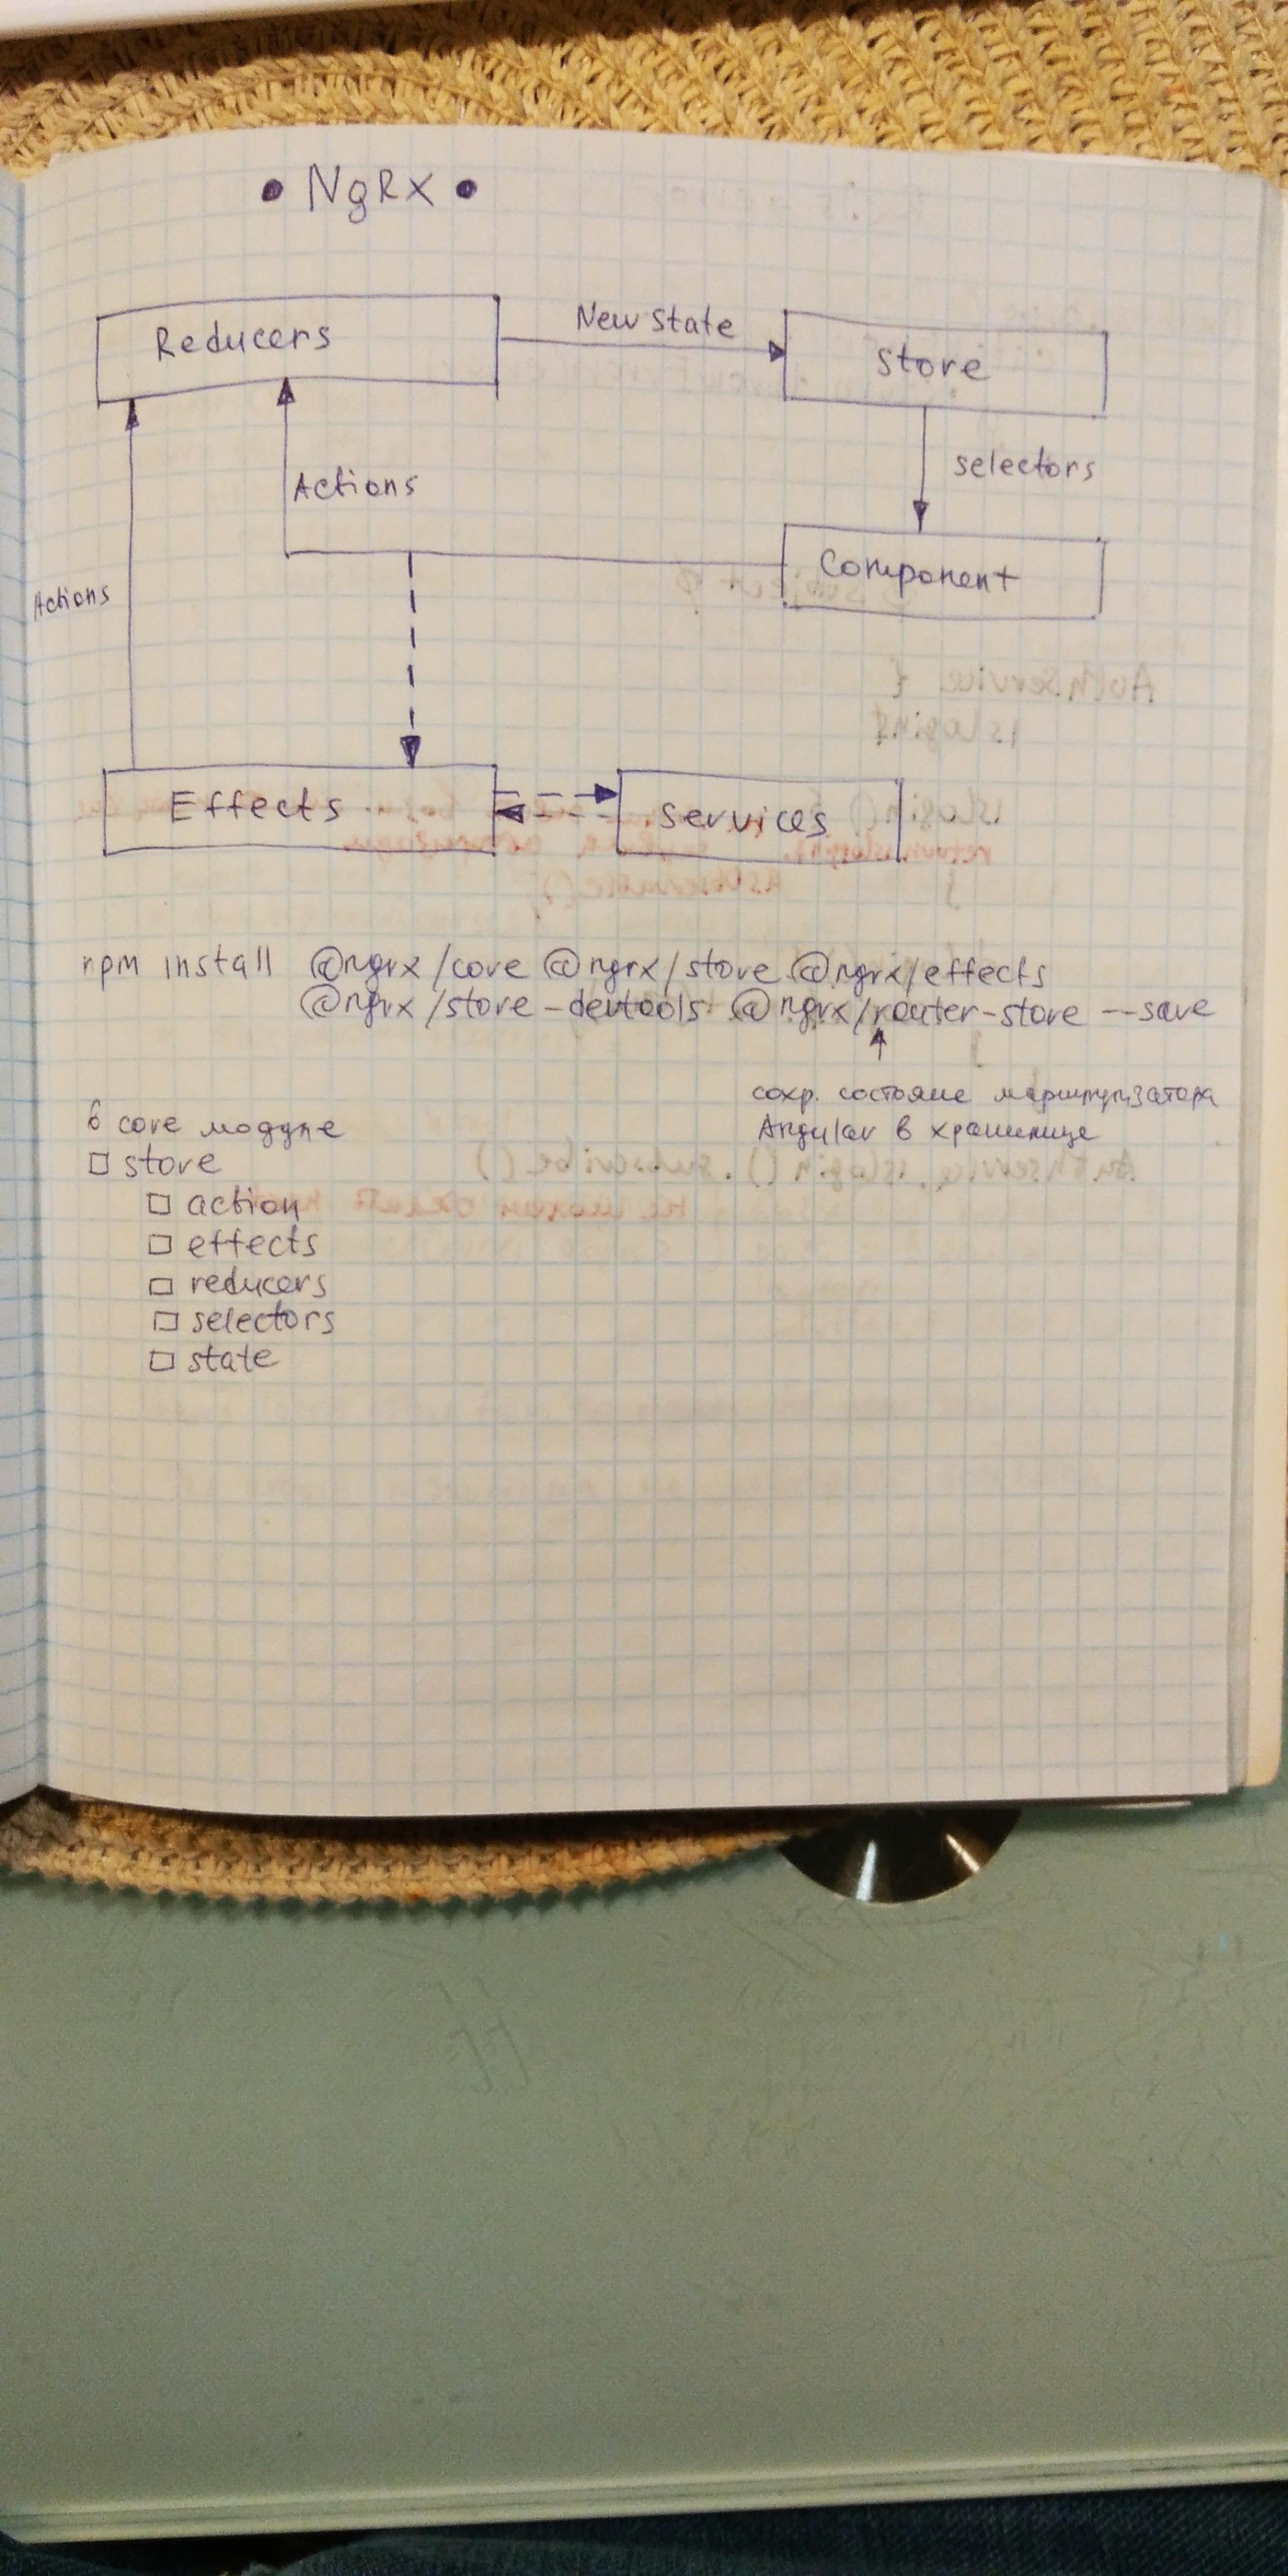 • NgRx •
Reducers
New State
Store
Actions
selectors
Component
Actions
Effects
Services
npm install @ngrx/core @ngrx/store @ngrx/effects
@ngrx/store-devtools @ngrx/router-store --save
сохр. состояние маршрутизатора
Angular в хранилище
в core модуле
store
action
effects
reducers
selectors
state